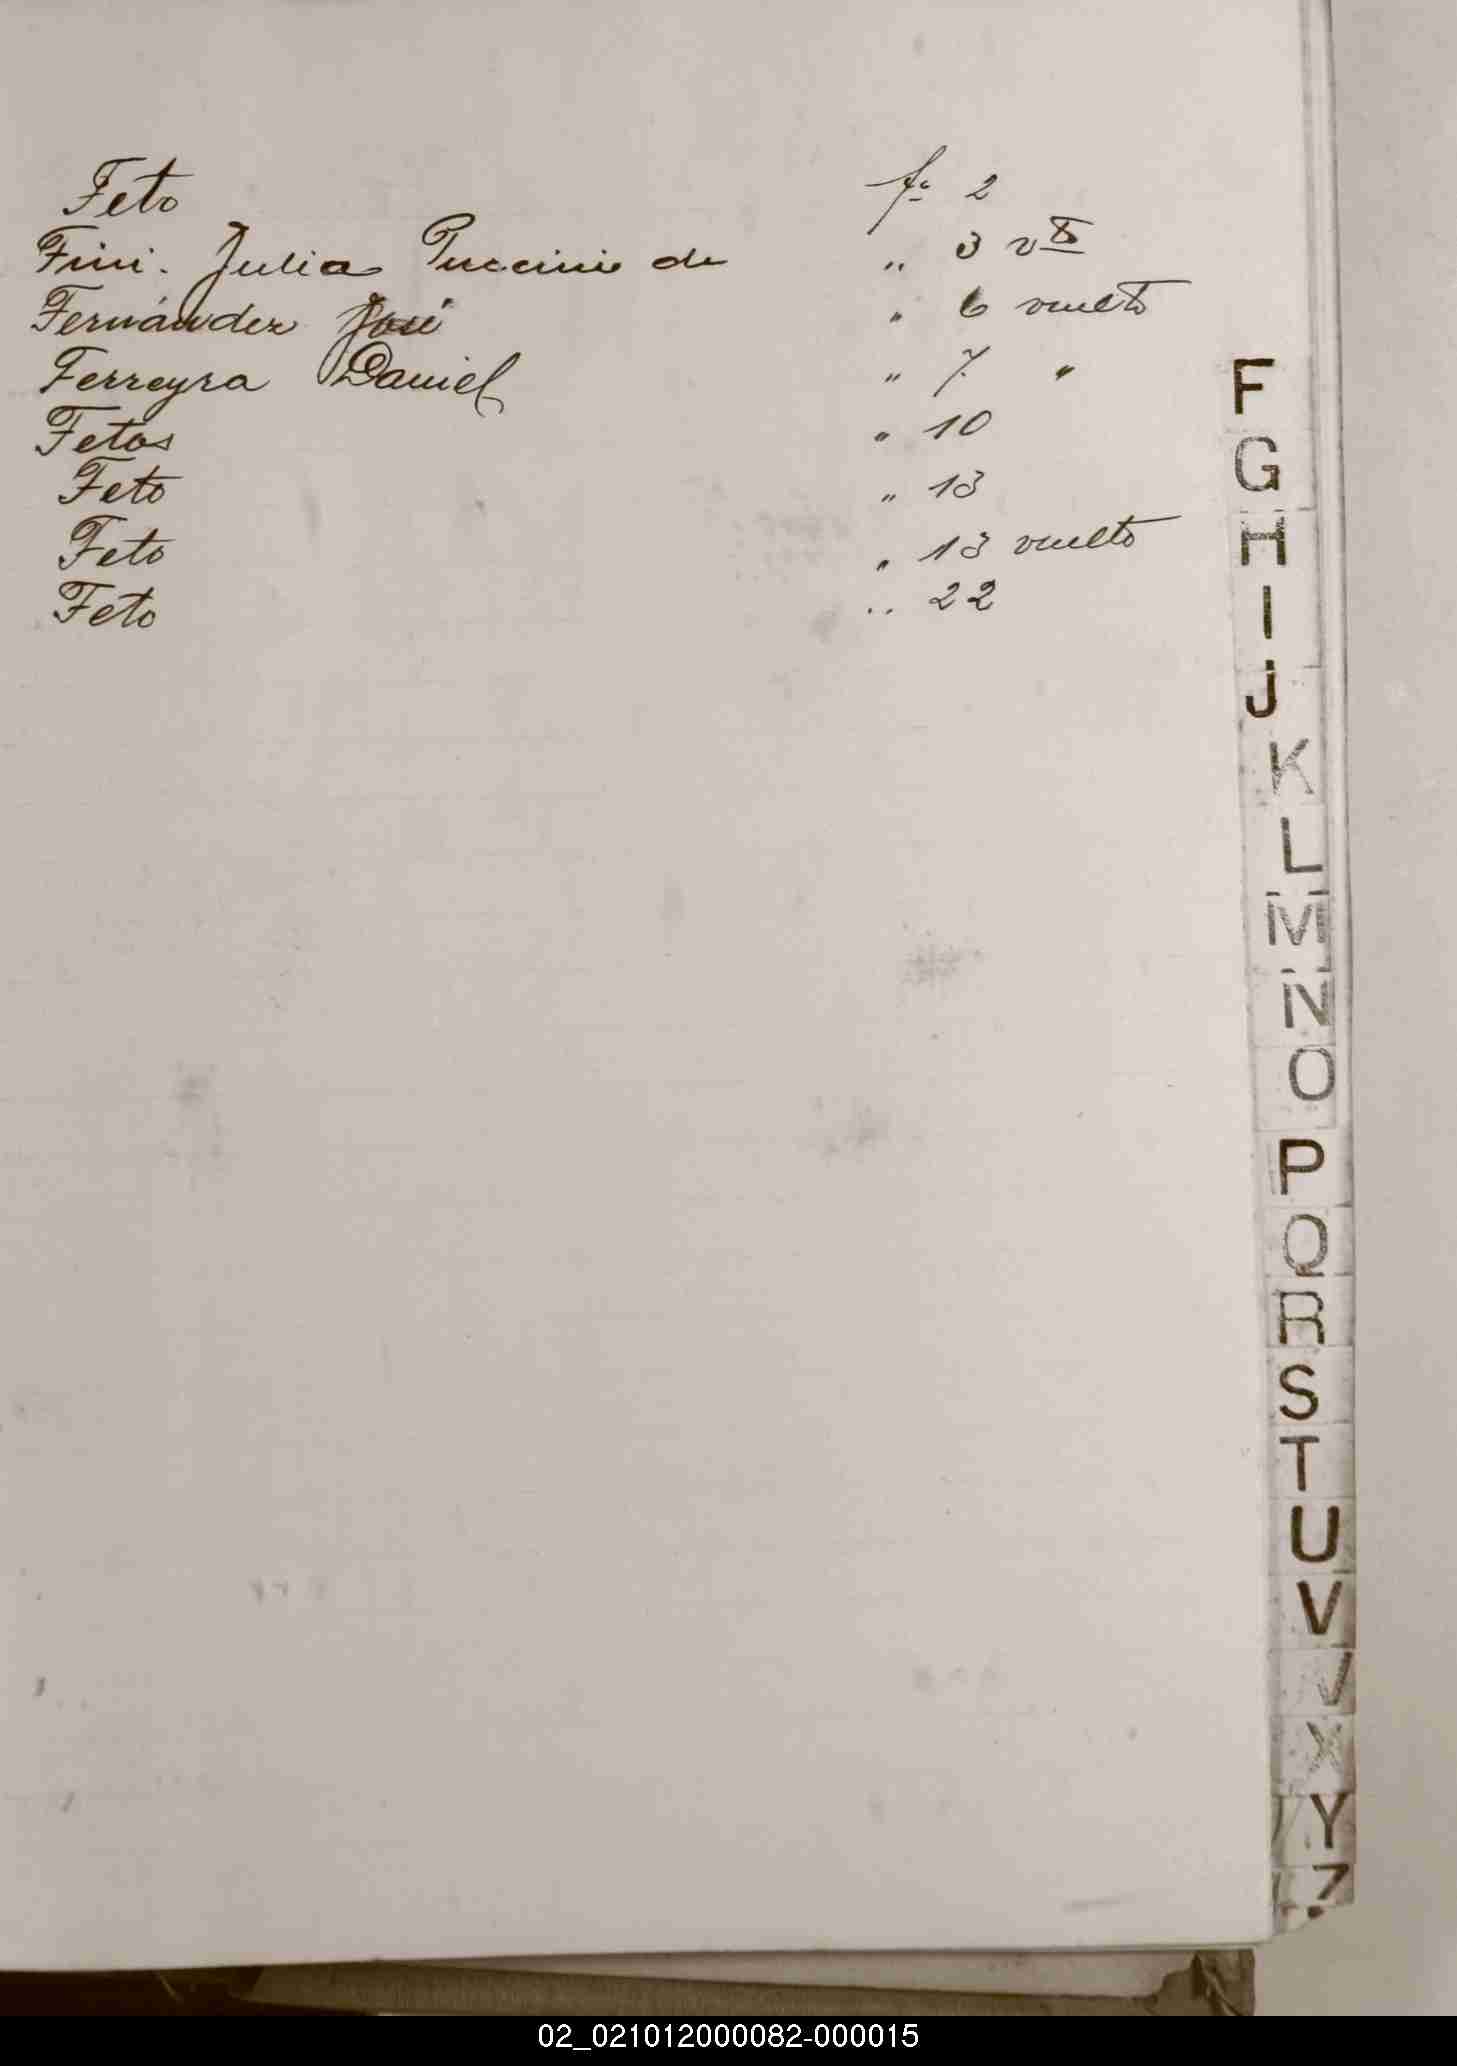 Feto fº 2
Fini. Julia Puccini de „ 3 vto
Fernández José „ 6 vuelto
Ferreyra Daniel „ 7. „
Fetos „ 10
Feto „ 13
Feto „ 13 vuelto
Feto „ 22
F
G
H
I
J
K
L
M
N
O
P
Q
R
S
T
U
V
X
Y
Z
02_021012000082-000015